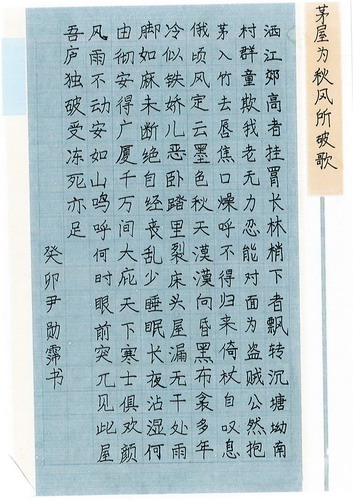 茅屋为秋风所破歌
洒江郊高者挂罥长林梢下者飘转沉塘坳南
村群童欺我老无力忍能对面为盗贼公然抱
茅入竹去唇焦口燥呼不得归来倚杖自叹息
俄顷风定云墨色秋天漠漠向昏黑布衾多年
冷似铁娇儿恶卧踏里裂床头屋漏无干处雨
脚如麻未断绝自经丧乱少睡眠长夜沾湿何
由彻安得广厦千万间大庇天下寒士俱欢颜
风雨不动安如山呜呼何时眼前突兀见此屋
吾庐独破受冻死亦足
癸卯尹勋书